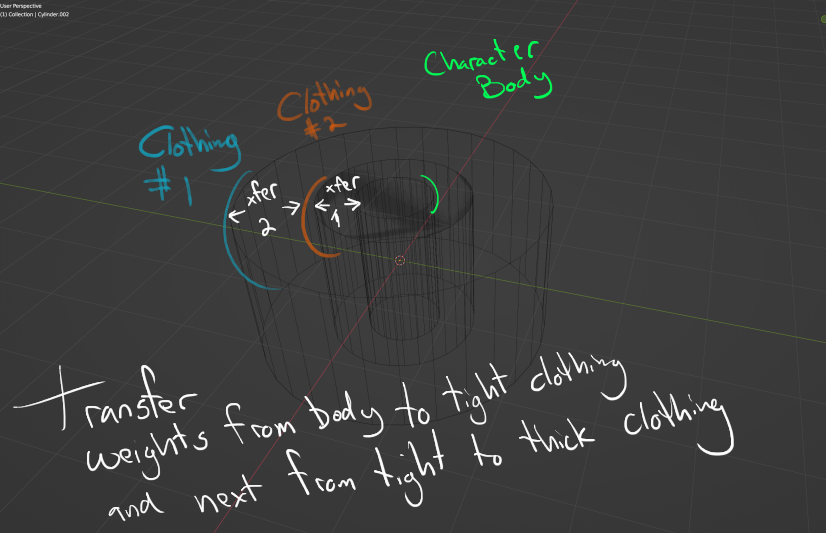 User Perspective
(1) Collection | Cylinder.002
Character
Body
Clothing
#2
Clothing
#1
xfer
1
xfer
2
Transfer
weights from body to tight clothing
and next from tight to thick clothing